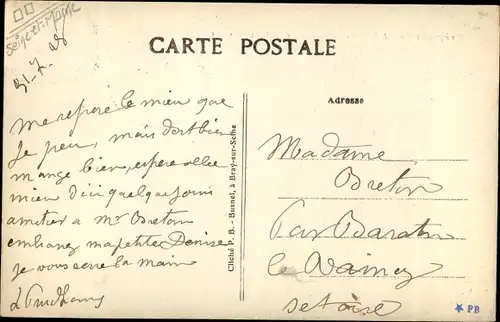 Seine et Marne
CARTE POSTALE
31-7-28
Adresse
me repose le mieu que
Je peu, mais dort bien
mange bien, espere allée
mieu d'ici quelque jours
amitier a Mr Breton
embrassez ma petite Denise
je vous serre la main
Cliché P. B. - Busnel, à Bray-sur-Seine
Madame
Breton
Par
le
set oise
PB